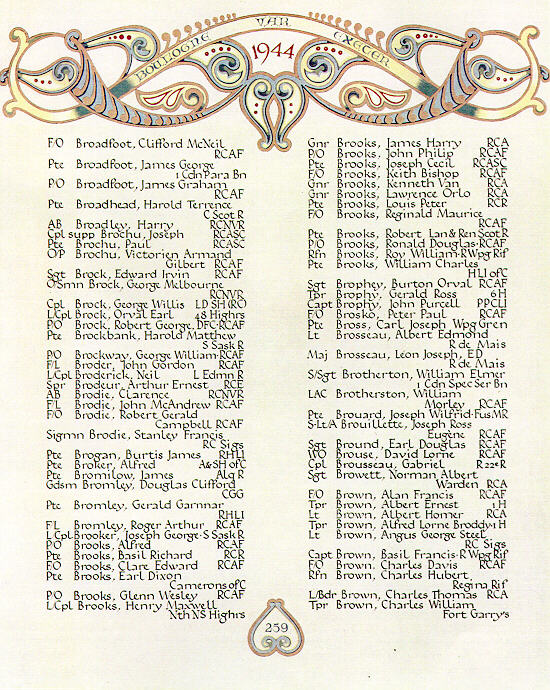 BOULOGNE VAR EXETER
1944
F/O Broadfoot, Clifford McNeil
RCAF
Pte Broadfoot, James George
1 Cdn Para Bn
P/O Broadfoot, James Graham
RCAF
Pte Broadhead, Harold Terrence
C Scot R
AB Broadley, Harry RCNVR
Cpl supp Brochu, Joseph RCASC
Pte Brochu, Paul RCASC
O/P Brochu, Victorien Armand
Gilbert RCAF
Sgt Brock, Edward Irvin RCAF
O'Smn Brock, George Melbourne
RCNVR
Cpl Brock, George Willis LD SH(RC)
L/Cpl Brock, Orval Earl 48 Highrs
P/O Brock, Robert George, DFC·RCAF
Pte Brockbank, Harold Matthew
S Sask R
P/O Brockway, George William·RCAF
F/L Broder, John Gordon RCAF
L/Cpl Broderick, Neil L Edmn R
Spr Brodeur, Arthur Ernest RCE
AB Brodie, Clarence RCNVR
F/L Brodie, John McAndrew RCAF
F/O Brodie, Robert Gerald
Campbell RCAF
Sigmn Brodie, Stanley Francis
RC Sigs
Pte Brogan, Curtis James RHLI
Pte Broker, Alfred A&SH of C
Pte Bromilow, James Alq R
Gdsm Bromley, Douglas Clifford
CGG
Pte Bromley, Gerald Garnnar
RHLI
F/L Bromley, Roger Arthur RCAF
L Cpl Brooker, Joseph George·S Sask R
P/O Brooks, Alfred RCAF
Pte Brooks, Basil Richard RCR
F/O Brooks, Clare Edward RCAF
Pte Brooks, Earl Dixon
Camerons of C
P/O Brooks, Glenn Wesley RCAF
L/Cpl Brooks, Henry Maxwell
Nth NS Highrs
Gnr Brooks, James Harry RCA
P/O Brooks, John Philip RCAF
Pte Brooks, Joseph Cecil RCASC
F/O Brooks, Keith Bishop RCAF
Gnr Brooks, Kenneth Van RCA
Gnr Brooks, Lawrence Orlo RCA
Pte Brooks, Louis Peter RCR
F/O Brooks, Reginald Maurice
RCAF
Pte Brooks, Robert Lan & Ren Scot R
P/O Brooks, Ronald Douglas·RCAF
Rfn Brooks, Roy William·R Wpg Rif
Pte Brooks, William Charles
HLI of C
Sgt Brophey, Burton Orval RCAF
Tpr Brophy, Gerald Ross 6 H
Capt Brophy, John Purcell PPCLI
F/O Brosko, Peter Paul RCAF
Pte Bross, Carl Joseph Wpg Gren
Lt Brosseau, Albert Edmond
R de Mais
Maj Brosseau, Leon Joseph, ED
R de Mais
S/Sgt Brotherton, William Elmer
1 Cdn Spec Ser Bn
LAC Brotherston, William
Morley RCAF
Pte Brouard, Joseph Wilfrid·Fus MR
S-Lt/A Brouillette, Joseph Ross
Eugene RCAF
Sgt Bround, Earl Douglas RCAF
WO Brouse, David Lorne RCAF
Cpl Brousseau, Gabriel R 22e R
Sgt Browett, Norman Albert
Warden RCA
F/O Brown, Alan Francis RCAF
Tpr Brown, Albert Ernest 1 H
Lt Brown, Albert Homer RCA
Tpr Brown, Alfred Lorne Broddy·1 H
Lt Brown, Angus George Steel
RC Sigs
Capt Brown, Basil Francis·R Wpg Rif
F/O Brown, Charles Davis RCAF
Rfn Brown, Charles Hubert
Regina Rif
L/Bdr Brown, Charles Thomas RCA
Tpr Brown, Charles William
Fort Garry's
259